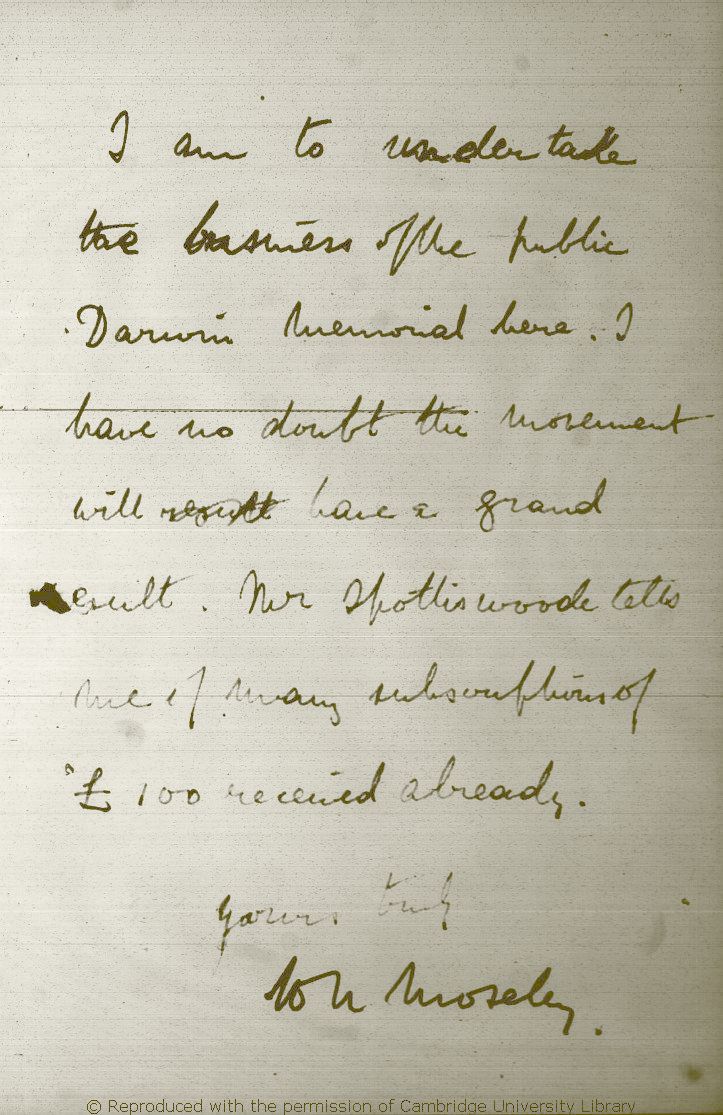 I am to undertake
the business of the public
Darwin Memorial here. I
have no doubt the movement
will result have a grand
result. Mr Spottiswoode tells
me of many subscriptions of
£100 received already.
yours truly
H N Moseley.
© Reproduced with the permission of Cambridge University Library